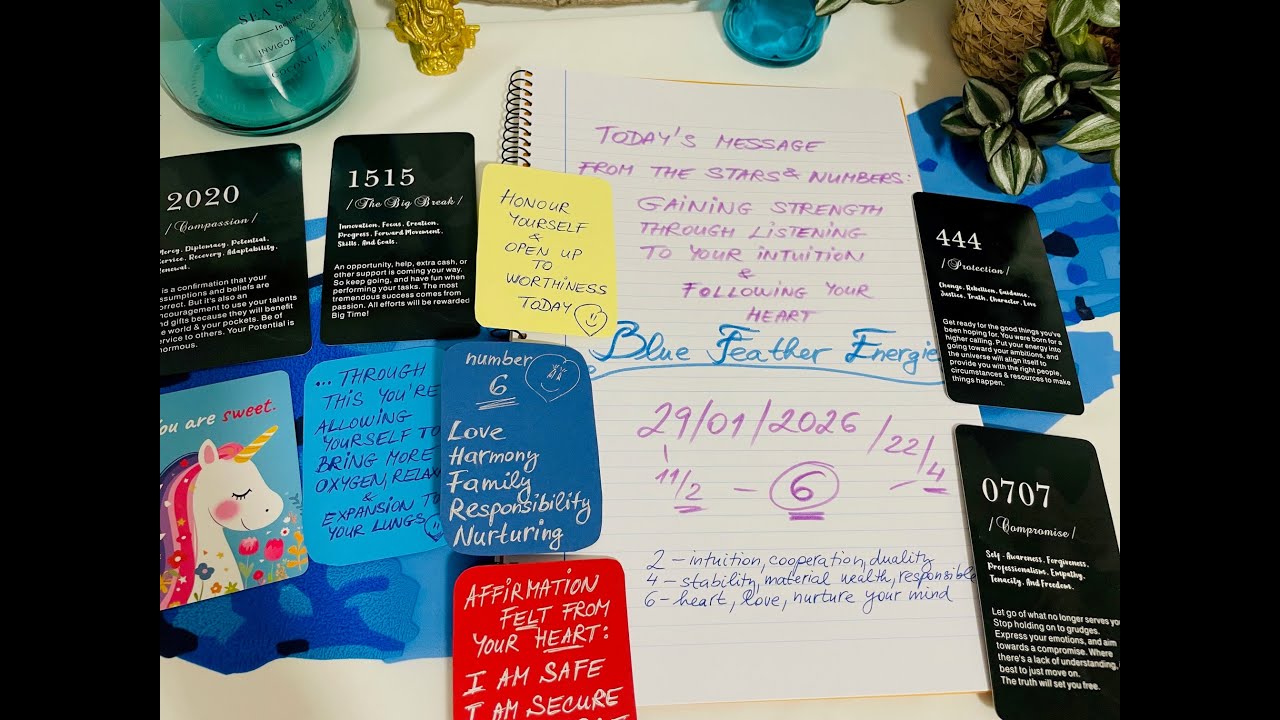 SEA SA
INVIGORATING
COCONUT
2020
/Compassion/
Mercy, Diplomacy, Potential,
Service, Recovery, Adaptability,
Renewal.
is a confirmation that your
ssumptions and beliefs are
rrect. But it's also an
ncouragement to use your talents
nd gifts because they will benefit
e world & your pockets. Be of
rvice to others. Your Potential is
normous.
1515
/The Big Break/
Innovation, Focus, Creation,
Progress, Forward Movement,
Skills, And Goals.
An opportunity, help, extra cash, or
other support is coming your way.
So keep going, and have fun when
performing your tasks. The most
tremendous success comes from
passion. All efforts will be rewarded
Big Time!
HONOUR
YOURSELF
&
OPEN UP
TO
WORTHINESS
TODAY
TODAY'S MESSAGE
FROM THE STARS & NUMBERS:
GAINING STRENGTH
THROUGH LISTENING
TO YOUR INTUITION
&
FOLLOWING YOUR
HEART
Blue Feather Energie
29/01/2026 /22/4
11/2 - 6 - 4
2 - intuition, cooperation, duality
4 - stability, material wealth, responsible
6 - heart, love, nurture your mind
444
/Protection/
Change, Rebellion, Guidance,
Justice, Truth, Character, Love
Get ready for the good things you've
been hoping for. You were born for a
higher calling. Put your energy into
going toward your ambitions, and
the universe will align itself to
provide you with the right people,
circumstances & resources to make
things happen.
0707
/Compromise/
Self-Awareness, Forgiveness,
Professionalism, Empathy,
Tenacity, And Freedom.
Let go of what no longer serves you
Stop holding on to grudges.
Express your emotions, and aim
towards a compromise. Where
there's a lack of understanding, i
best to just move on.
The truth will set you free.
You are sweet.
... THROUGH
THIS YOU'RE
ALLOWING
YOURSELF TO
BRING MORE
OXYGEN, RELAXA
&
EXPANSION TO
YOUR LUNGS
number
6
Love
Harmony
Family
Responsibility
Nurturing
AFFIRMATION
FELT FROM
YOUR HEART:
I AM SAFE
I AM SECURE